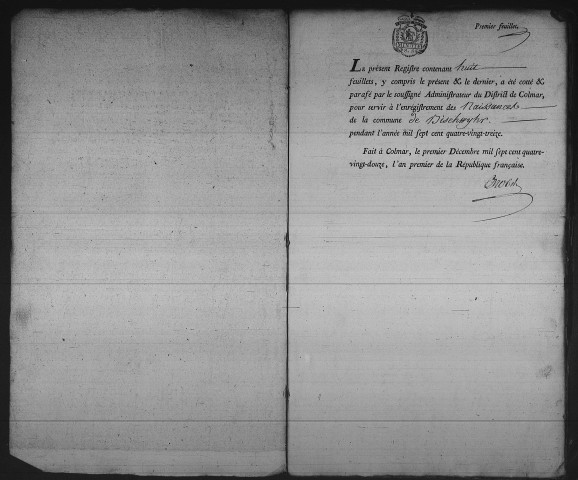 Premier feuillet.
LE présent Registre contenant huit
feuillets, y compris le présent & le dernier, a été cotté &
parafé par le soussigné Administrateur du District de Colmar,
pour servir à l'enrégistrement des Naissances
de la commune de Bischwyhr
pendant l'année mil sept cent quatre-vingt-treize.
Fait à Colmar, le premier Décembre mil sept cent quatre-
vingt-douze, l'an premier de la République françaife.